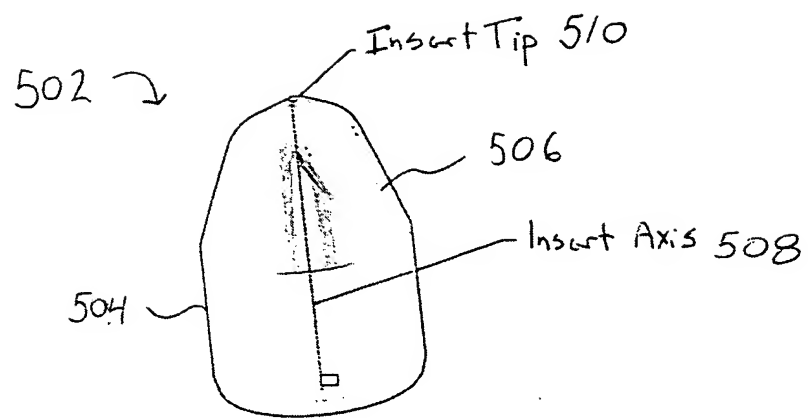 Insert Tip 510
502
506
Insert Axis 508
504